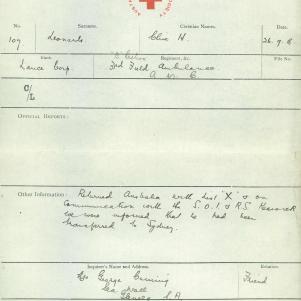 No. Surname. Christian Names. Date.
109 Leonard Clive H. 26.9.
Rank. Regiment, &c. File No.
Lance Corp. 3rd Field Ambulance
A M C
OFFICIAL REPORTS:
Other Information: Returned Australia with list "X" & on
Communication with the S.O.I. & R.S.
we were informed that he had been
transferred to Sydney.
Inquirer's Name and Address. Relation.
George Friend
S.A.